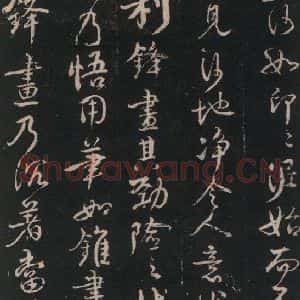 沙如印印泥始而不
見沙地净令人意
利鋒畫其勁險之狀
乃悟用筆如錐畫
鋒畫乃沉著當
Shufawang.CN